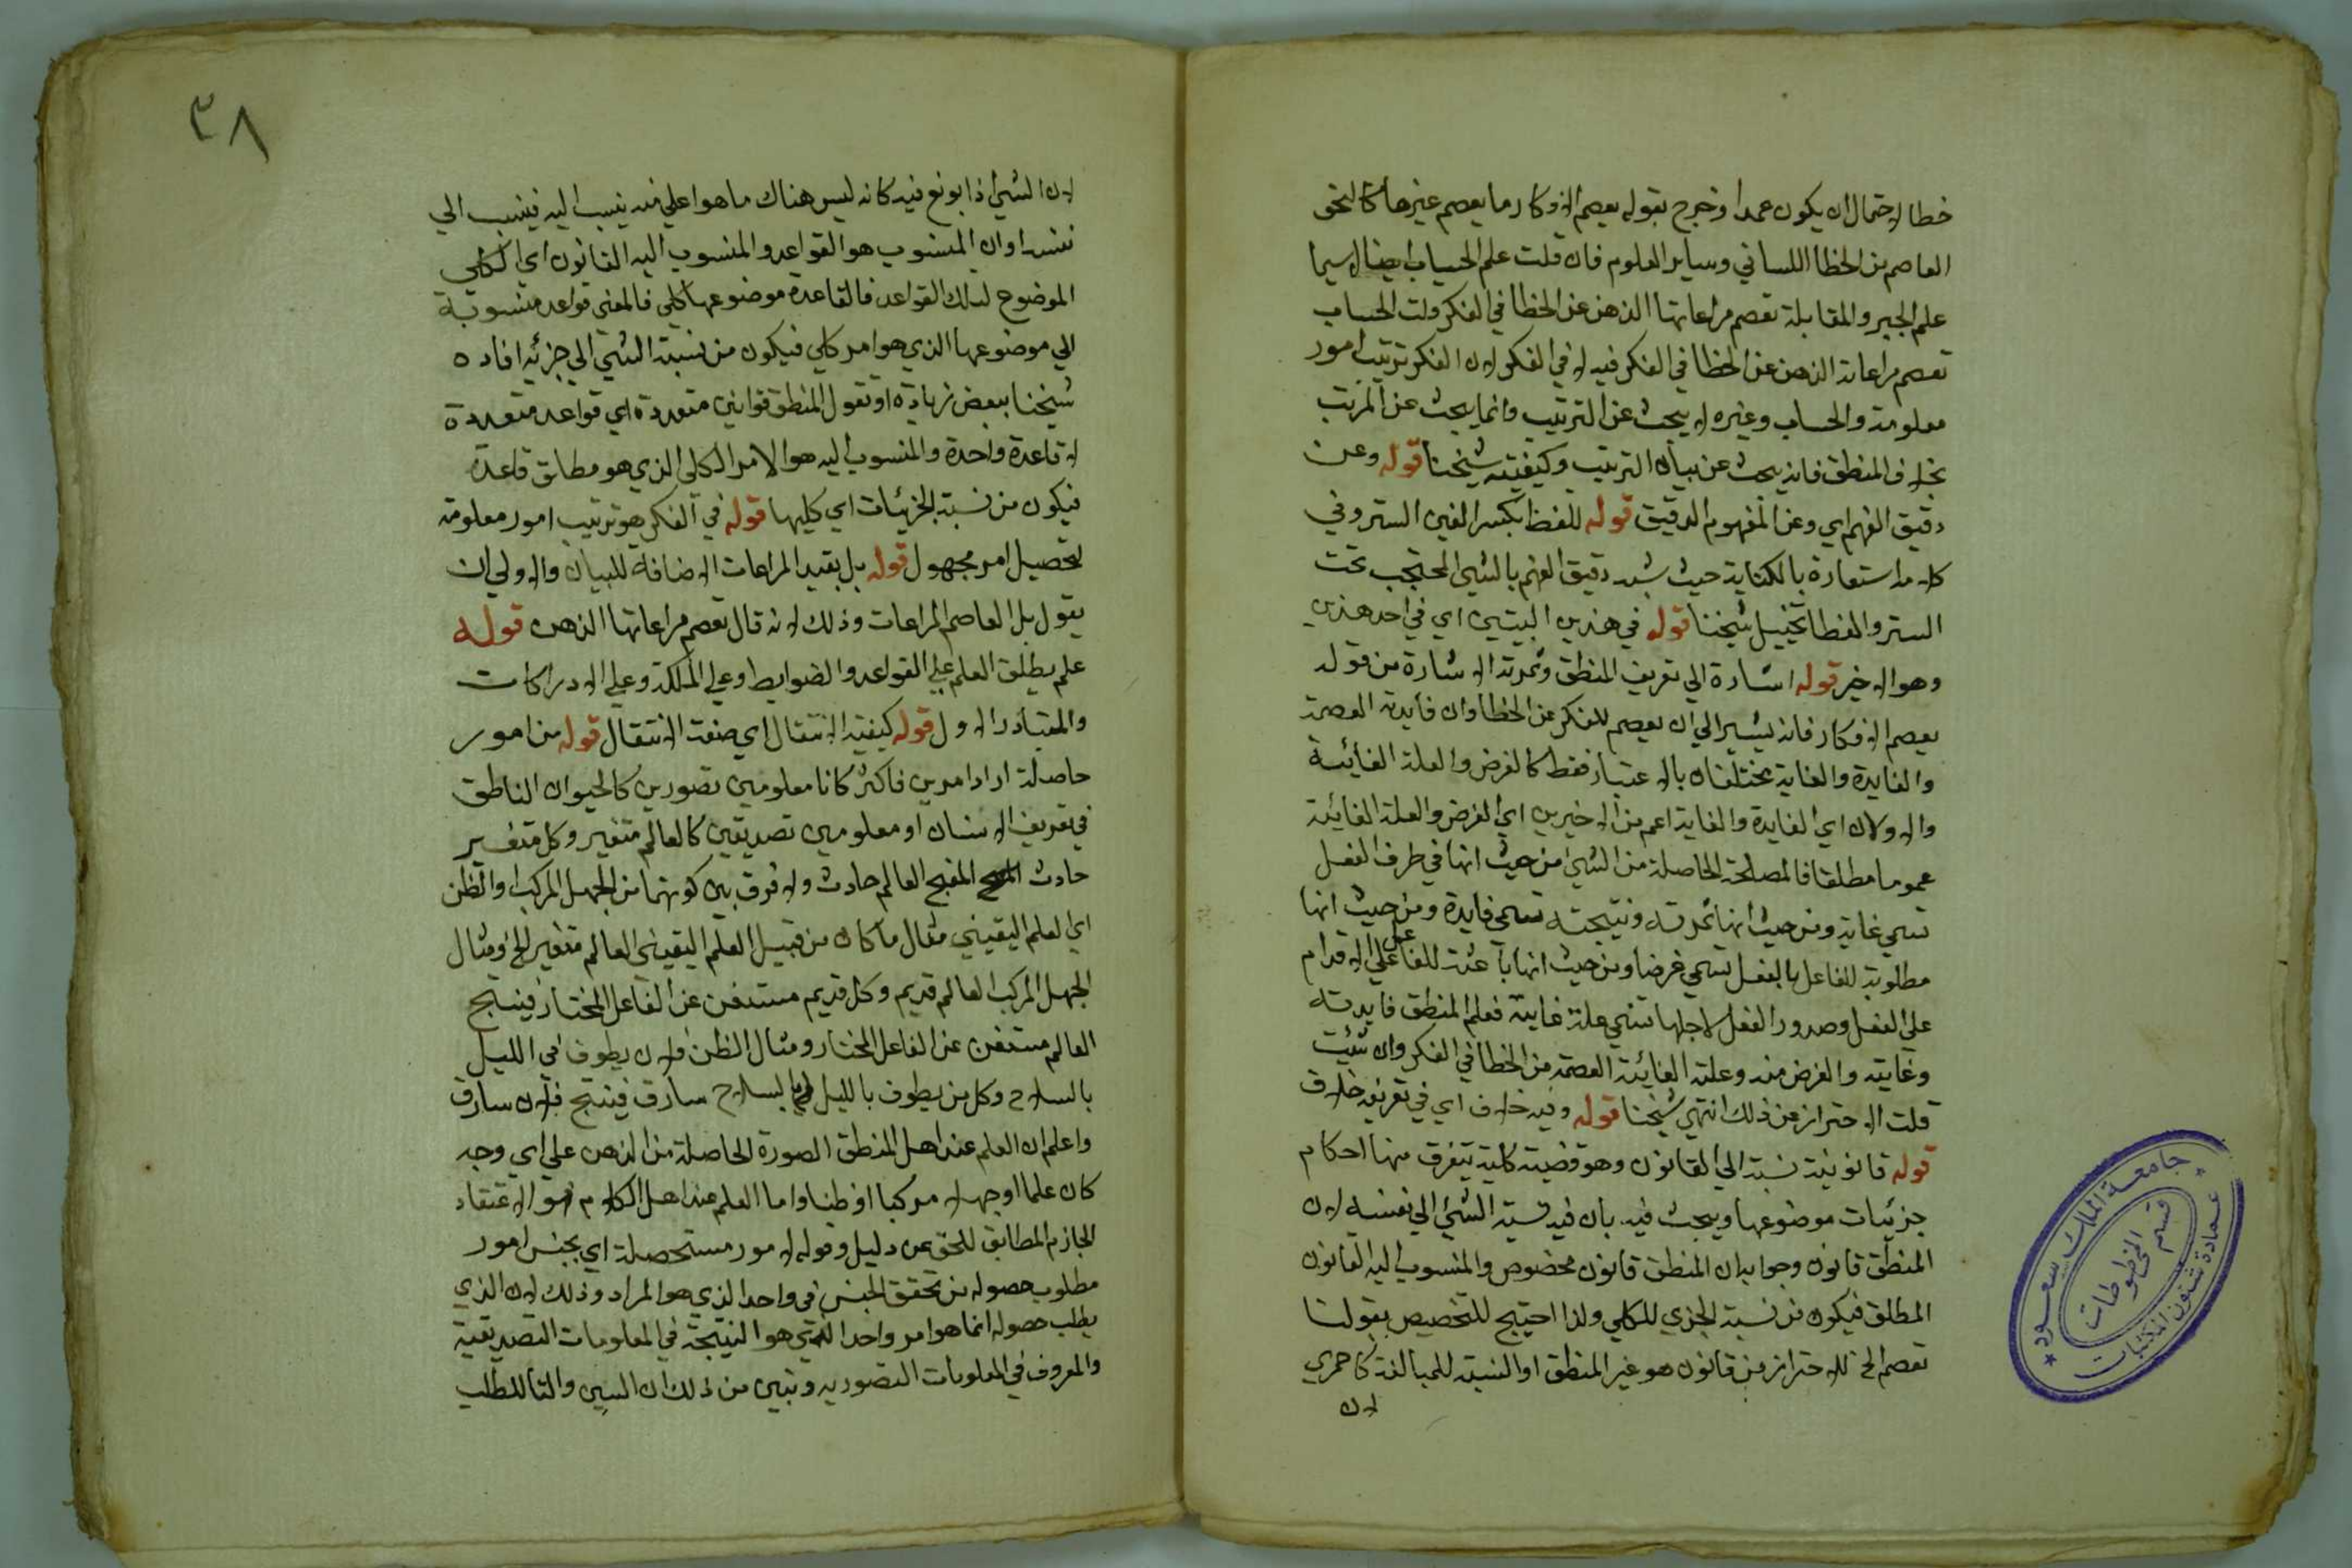 خطا لاحتمال ان يكون عمدا وخرج بقوله يعصم الافكار ما يعصم غيرها كالنحو
العاصم من الخطا اللساني وساير العلوم فان قلت علم الحساب ايضا لا سيما
علم الجبر والمقابلة تعصم مراعاتها الذهن عن الخطا في الفكر قلت الحساب
تعصم مراعاته الذهن عن الخطا في الفكر فيه لا في الفكر لان الفكر ترتيب امور
معلومة والحساب وغيره لا يبحث عن الترتيب وانما يبحث عن المرتب
بخلاف المنطق فانه يبحث عن بيان الترتيب وكيفيته شيخنا قوله وعن
دقيق الفهم اي وعن المفهوم الدقيق قوله الغطا بكسر الغين الستر وفي
كلامه استعارة بالكناية حيث شبه دقيق الفهم بالشي المحتجب تحت
الستر والغطا تخييل شيخنا قوله في هذين البيتين اي في احد هذين
وهو الاخير قوله اشارة الي تعريف المنطق وثمرته الاشارة من قوله
يعصم الافكار فانه يشير الي ان يعصم للفكر عن الخطا وان فايدته العصمة
والفايدة والغاية مختلفان بالاعتبار فقط كالغرض والعلة الغائية
والاولان اي الفايدة والغاية اعم من الاخيرين اي الغرض والعلة الغائية
عموما مطلقا فالمصلحة الحاصلة من الشي من حيث انها في طرف الفعل
تسمي غاية ومن حيث انها ثمرته ونتيجته تسمي فايدة ومن حيث انها
مطلوبة للفاعل بالفعل يسمي غرضا ومن حيث انها باعثة للفاعل علي الاقدام
على الفعل وصدور الفعل لاجلها تسمي علة غاية فعلم المنطق فايدته
وغايته والغرض منه وعلته الغائية العصمة من الخطا في الفكر وان شيت
قلت الاحتراز عن ذلك انتهي شيخنا قوله وفيه خلاف اي في تعريفه خلاف
قوله قانونية نسبة الي القانون وهو قضية كلية يتفرق منها احكام
جزئيات موضوعها ويبحث فيه بان فيه نسبة الشي الي نفسه لان
المنطق قانون وجوابه ان المنطق قانون مخصوص والمنسوب اليه القانون
المطلق فيكون من نسبة الجزي للكلي ولذا احتيج للتخصيص بقولنا
تعصم الخ للاحتراز من قانون هو غير المنطق او النسبة للمبالغة كاحمري
لان
٣٨
لان الشي اذا بولغ فيه كانه ليس هناك ما هو اعلي منه ينسب اليه فينسب الي
نفسه او ان المنسوب هو القواعد والمنسوب اليه القانون اي الكلي
الموضوع لتلك القواعد فالقاعدة موضوعها كلي فالمعني قواعد منسوبة
الي موضوعها الذي هو امر كلي فيكون من نسبة الشي الي جزئه افاده
شيخنا ببعض زيادة او تقول المنطق قوانين متعددة اي قواعد متعددة
لا قاعدة واحدة والمنسوب اليه هو الامر الكلي الذي هو مطلق قاعدة
فيكون من نسبة الجزئيات اي كليها قوله في الفكر هو ترتيب امور معلومة
لتحصيل امر مجهول قوله بل بقيد المراعات الاضافة للبيان والاولي ان
يقول بل العاصم المراعات وذلك لانه قال تعصم مراعاتها الذهن قوله
علم يطلق العلم علي القواعد والضوابط وعلي الملكة وعلي الادراكات
والمتبادر الاول قوله كيفية الانتقال اي صفة الانتقال قوله من امور
حاصلة اراد امرين فاكثر كانا معلومين تصورين كالحيوان الناطق
في تعريف الانسان او معلومين تصديقين كالعالم متغير وكل متغير
حادث المنتج العالم حادث ولا فرق بين كونهما من الجهل المركب والظن
اي العلم اليقيني مثال ما كان من قبيل العلم اليقيني العالم متغير الخ ومثال
الجهل المركب العالم قديم وكل قديم مستغن عن الفاعل المختار فينتج
العالم مستغن عن الفاعل المختار ومثال الظن فلان يطوف في الليل
بالسلاح وكل من يطوف بالليل بالسلاح سارق فينتج فلان سارق
واعلم ان العلم عند اهل المنطق الصورة الحاصلة من الذهن علي اي وجه
كان علما او جهلا مركبا او ظنا واما العلم عند اهل الكلام هو الاعتقاد
الجازم المطابق للحق عن دليل وقوله لامور مستحصلة اي بجنس امور
مطلوب حصوله من تحقق الجنس في واحد الذي هو المراد وذلك لان الذي
يطلب حصوله انما هو امر واحد الذي هو النتيجة في المعلومات التصديقية
والمعروف في المعلومات التصورية وتبين من ذلك ان السين والتا للطلب
جامعة الملك سعود
قسم المخطوطات
عمادة شئون المكتبات